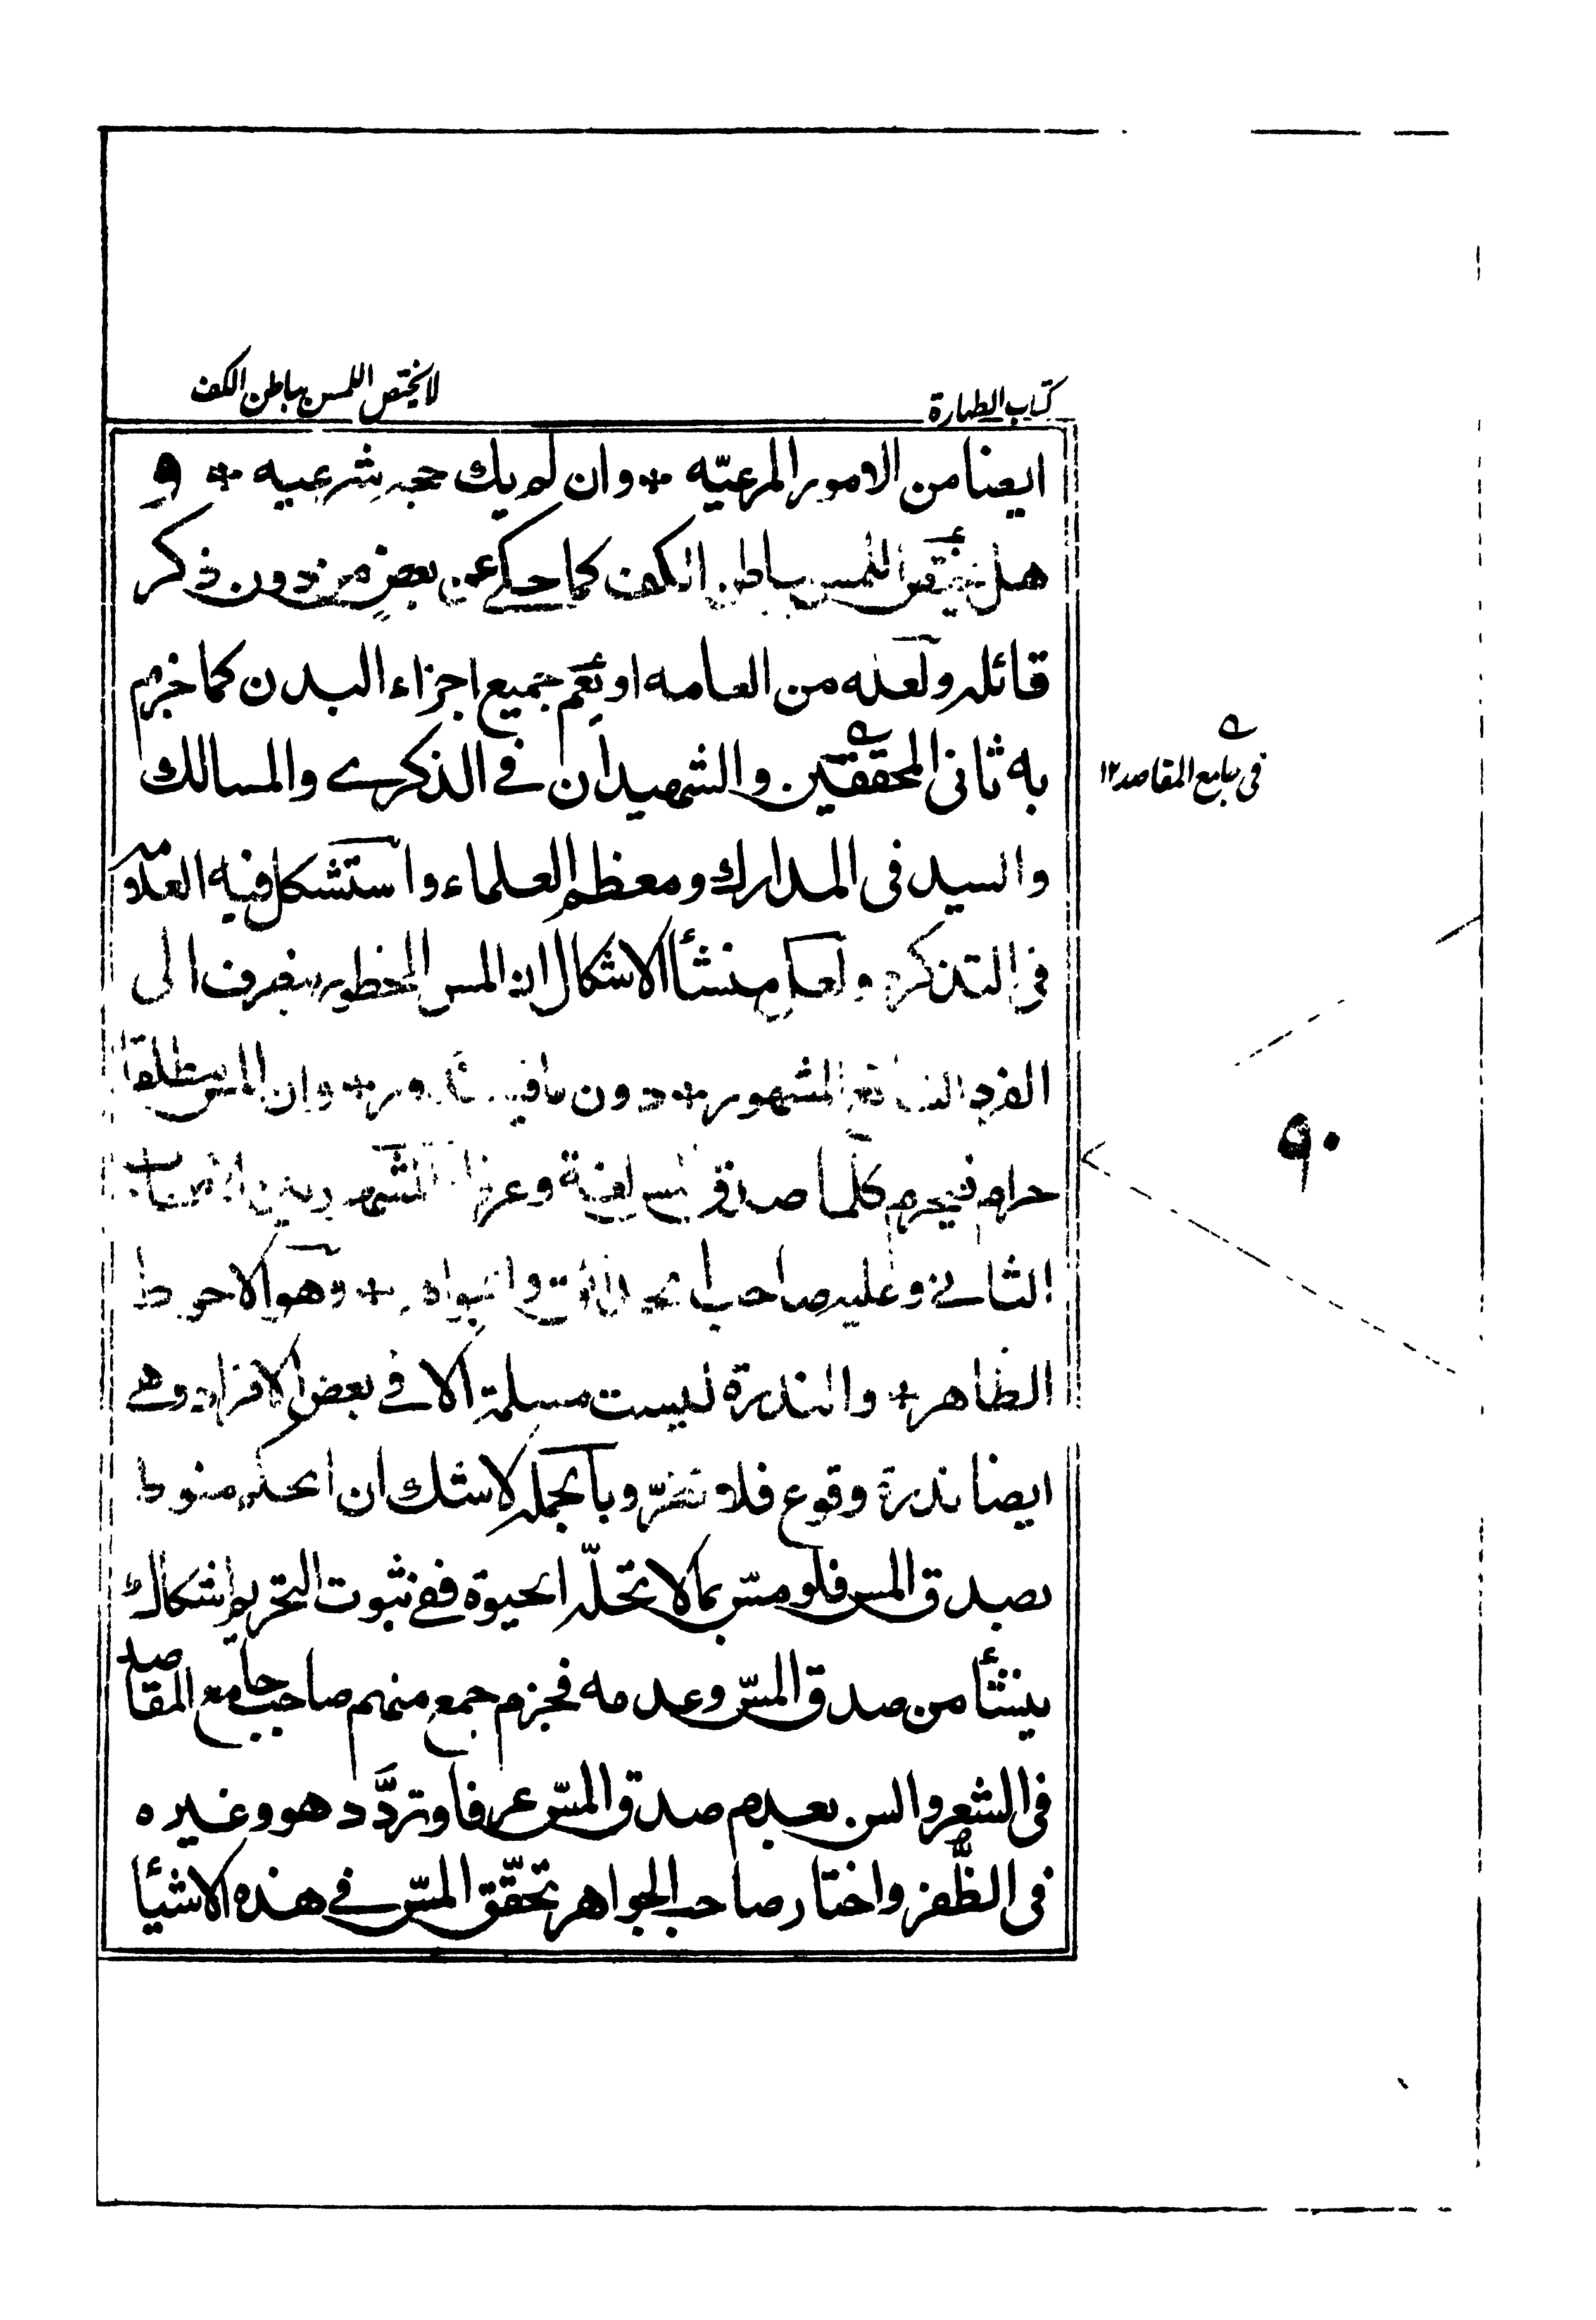 كتاب الطهارة
لا يختص اللمس بباطن الكف
ايضا من الامور المرعيّه + وان لم يك حجه شرعيه + و
هل يختص اللمس بباطن الكف كما حكى عن بعض من دون ذكر
قائله ولعله من العامه او يعم جميع اجزاء البدن كما جزم
به ثانى المحققين والشهيدان فى الذكرى والمسالك
فى جامع المقاصد ١٢
والسيد فى المدارك ومعظم العلماء واستشكل فيه العلامه
فى التذكره ولعل منشأ الاشكال ان المس المحظور ينصرف الى
الفرد المشهور + دون ما فيه + وان المس مطلقا
٩٠
حرام فيحرم كلما صدق لغة وعرفا
الثانى وعليه صاحب + وهو الاحوط
الظاهر + والندرة ليست مسلمة الا فى بعض الافراد وهى
ايضا ندرة وقوع فلا تغتر وبالجمله لا شك ان الحكم منوط
بصدق المس فلو مسّ بما لا تحلّه الحيوة ففى ثبوت التحريم اشكال
ينشأ من صدق المسّ وعدمه فجزم جمع منهم صاحب جامع المقاصد
فى الشعر والسن بعدم صدق المسّ عرفا وتردَّد هو وغيره
فى الظُّفر واختار صاحب الجواهر تحقّق المسّ فى هذه الاشيأ